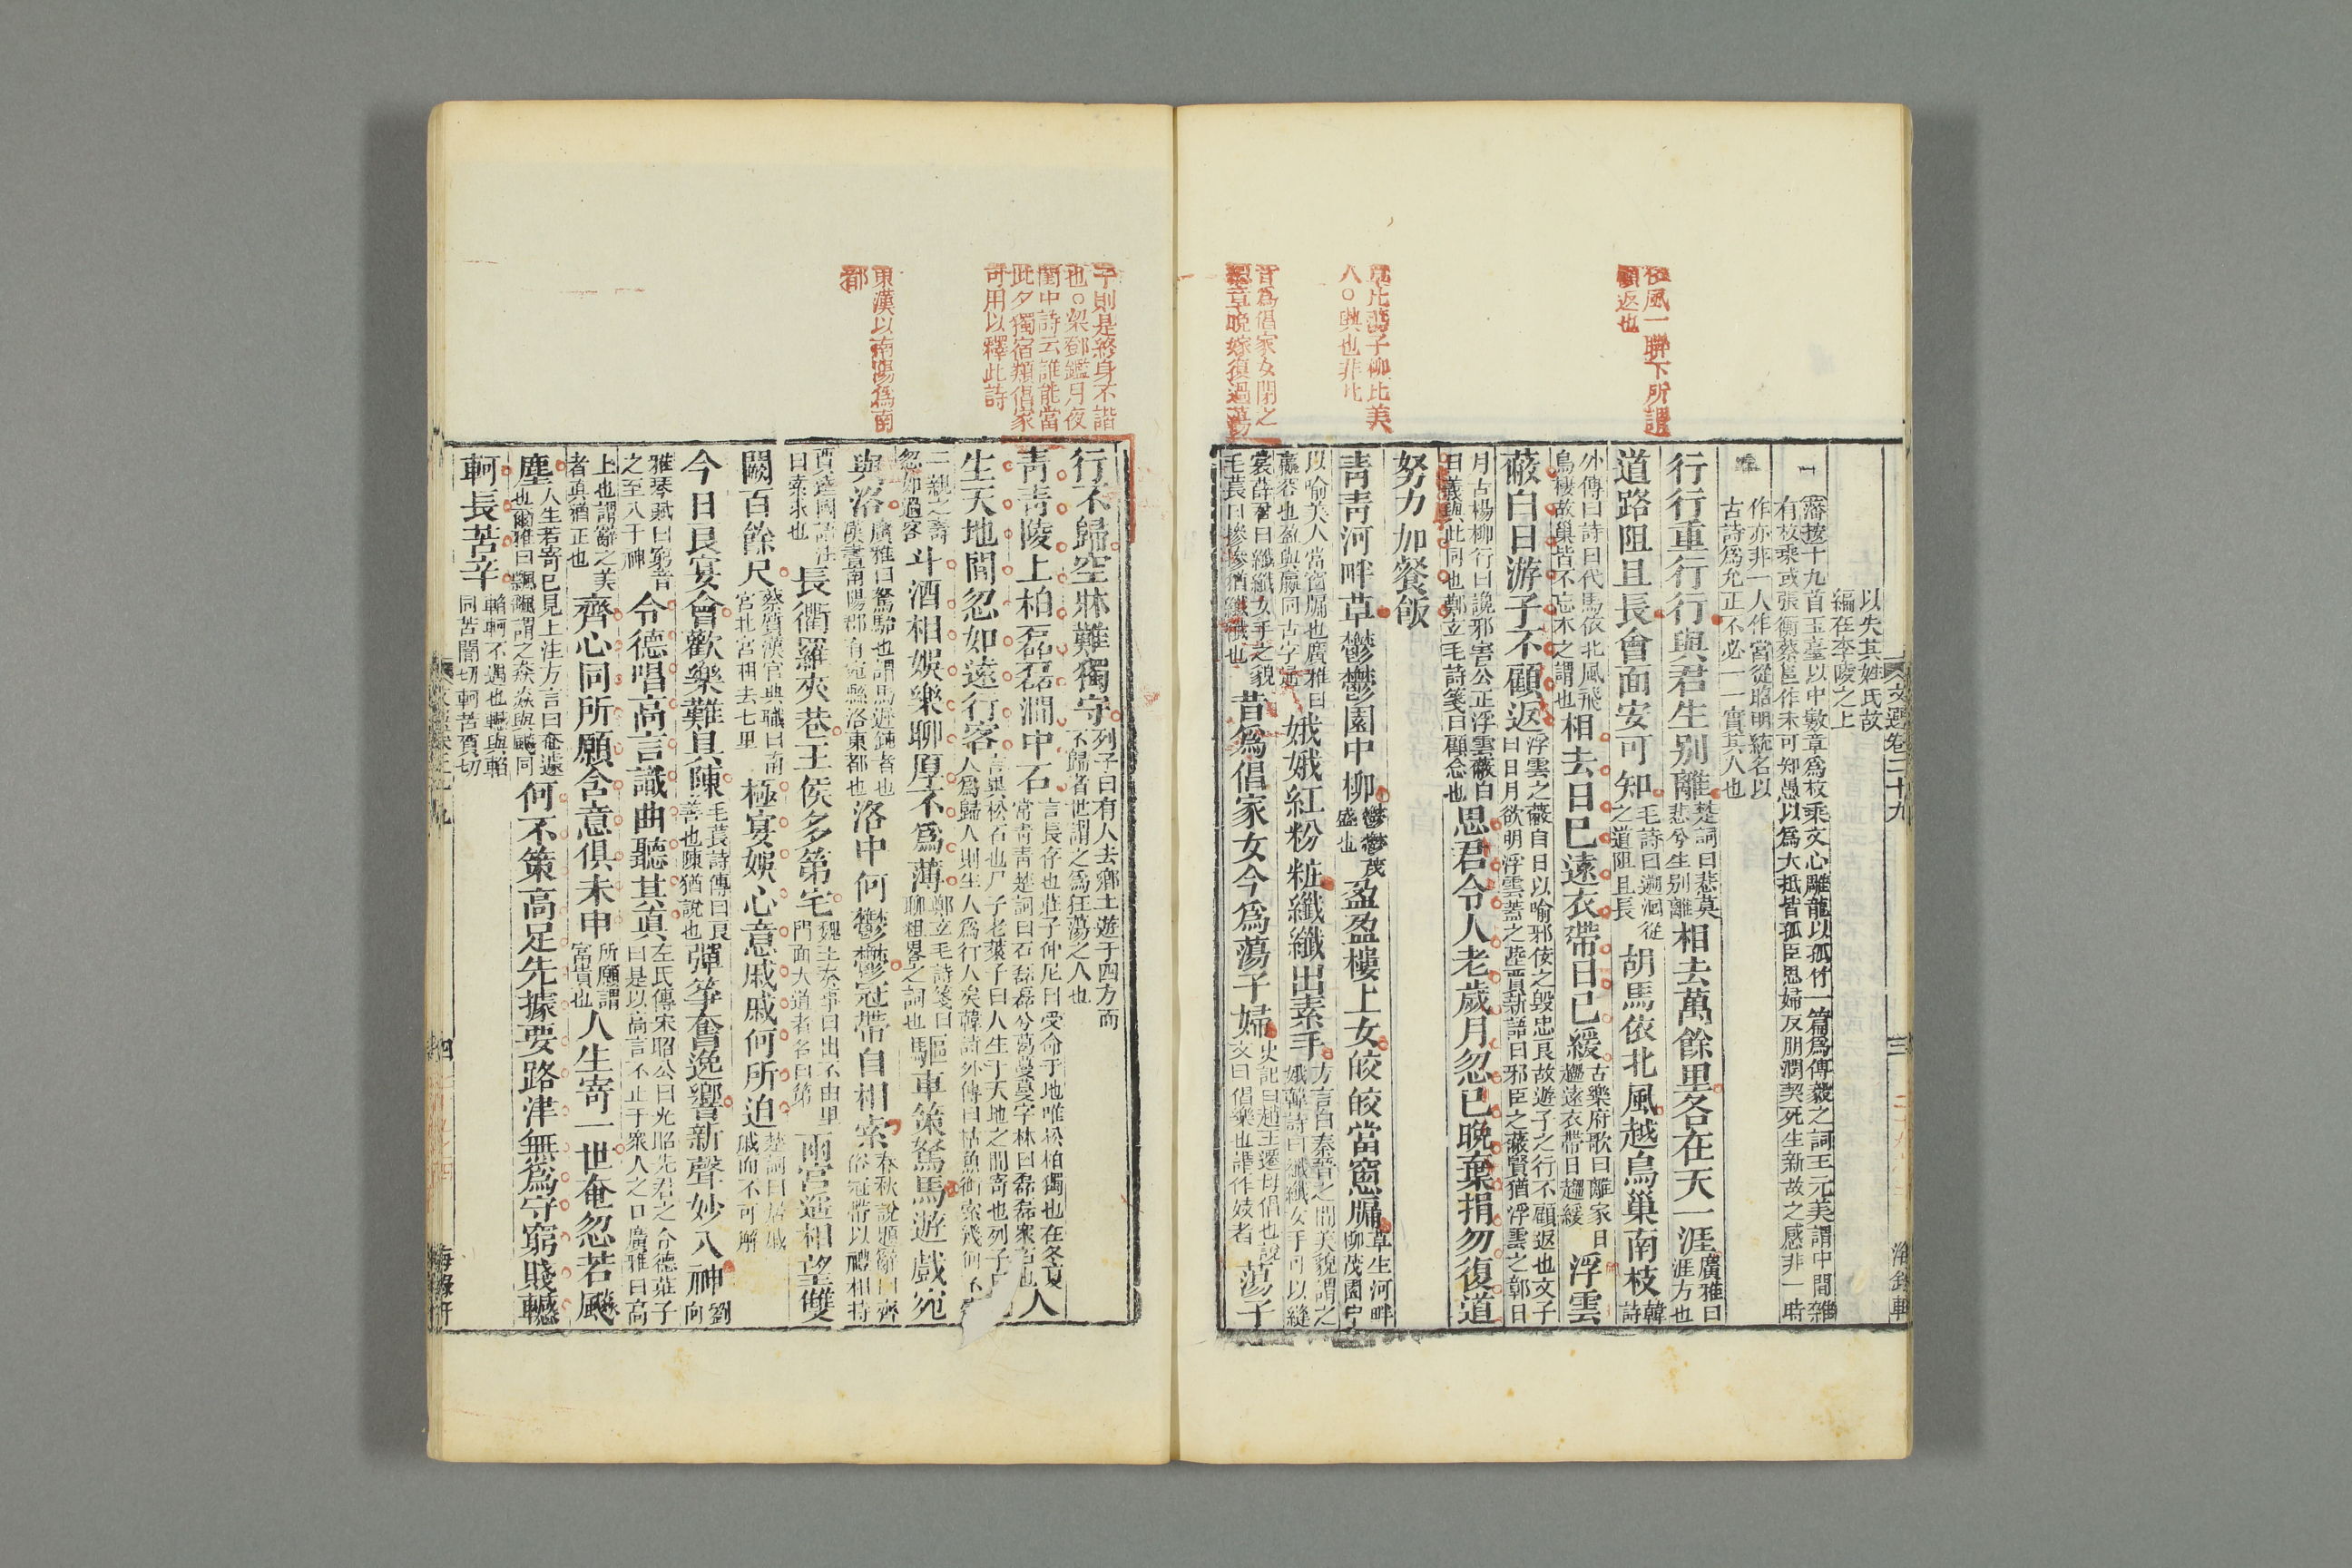 文選卷二十九
三
海錄軒
以失其姓氏故
編在李陵之上
藩按十九首玉臺以中數章爲枚乘文心雕龍以孤竹一篇爲傅毅之詞王元美謂中間雜
有枚乘或張衡蔡邕作未可知愚以爲大抵皆孤臣思婦友朋濶契死生新故之感非一時
作亦非一人作當從昭明統名以
古詩爲允正不必一一實其人也
行行重行行與君生别離
楚詞曰悲莫
悲兮生别離
相去萬餘里各在天一涯
廣雅曰
涯方也
道路阻且長會面安可知
毛詩曰遡洄從
之道阻且長
胡馬依北風越鳥巢南枝
韓
詩
外傳曰詩曰代馬依北風飛
鳥棲故巢皆不忘本之謂也
相去日已遠衣帶日已緩
古樂府歌曰離家日
趨遠衣帶日趨緩
浮雲
蔽白日游子不顧返
浮雲之蔽白日以喻邪佞之毀忠良故遊子之行不顧返也文子
曰日月欲明浮雲蓋之陸賈新語曰邪臣之蔽賢猶浮雲之鄣日
月古楊柳行曰讒邪害公正浮雲蔽白
日義與此同也鄭玄毛詩箋曰顧念也
思君令人老歲月忽已晚棄捐勿復道
努力加餐飯
青青河畔草鬱鬱園中柳
鬱鬱茂
盛也
盈盈樓上女皎皎當窻牖
草生河畔
柳茂園中
以喻美人當窻牖也廣雅曰
嬴容也盈與嬴同古字通
娥娥紅粉粧纖纖出素手
方言曰秦晉之間美貌謂之
娥韓詩曰纖纖女手可以縫
裳薛君曰纖纖女手之貌
毛萇曰摻摻猶纖纖也
昔爲倡家女今爲蕩子婦
史記曰趙王遷母倡也說
文曰倡樂也謂作妓者
蕩子
佞風一聯下所謂
顧返也
草比蕩子柳比美
人○興也非比
昔爲倡家女閉之
章晚嫁復過蕩
子則是終身不諧
也○梁鄧鑑月夜
閨中詩云誰能當
此夕獨宿類倡家
可用以釋此詩
東漢以南陽爲南
都
行不歸空牀難獨守
列子曰有人去鄉土遊于四方而
不歸者世謂之爲狂蕩之人也
青青陵上柏磊磊澗中石
言長存也莊子仲尼曰受命于地唯松柏獨也在冬夏
常青青楚詞曰石磊磊兮葛蔓蔓字林曰磊磊衆石也
人
生天地間忽如遠行客
言異松石也尸子老萊子曰人生于天地之間寄也列子曰
人爲歸人則生人爲行人矣韓詩外傳曰枯魚銜索幾何不
二親之壽
忽如過客
斗酒相娛樂聊厚不爲薄
鄭玄毛詩箋曰
聊粗畧之詞也
驅車策駑馬遊戲宛
與洛
廣雅曰駑駘也謂馬遲鈍者也
漢書南陽郡有宛縣洛東都也
洛中何鬱鬱冠帶自相索
春秋說題辭曰齊
俗冠帶以禮相持
賈逵國語注
曰索求也
長衢羅夾巷王侯多第宅
魏王奏事曰出不由里
門面大道者名曰第
兩宮遥相望雙
闕百餘尺
蔡質漢官典職曰南
宮北宮相去七里
極宴娛心意戚戚何所迫
楚詞曰居戚
戚而不可解
今日良宴會歡樂難具陳
毛萇詩傳曰良
善也陳猶說也
彈筝奮逸響新聲妙入神
劉
向
雅琴賦曰窮音
之至入于神
令德唱高言識曲聽其真
左氏傳宋昭公曰光昭先君之令德莊子
曰是以高言不止于衆人之口廣雅曰高
上也謂辭之美
者真猶正也
齊心同所願含意俱未申
所願謂
富貴也
人生寄一世奄忽若飈
塵
人生若寄已見上注方言曰奄遽
也爾雅曰飄颻謂之猋猋與飈同
何不策高足先據要路津無爲守窮賤轗
軻長苦辛
轗軻不遇也轗與輡
同苦闇切軻苦賀切
四
海錄軒